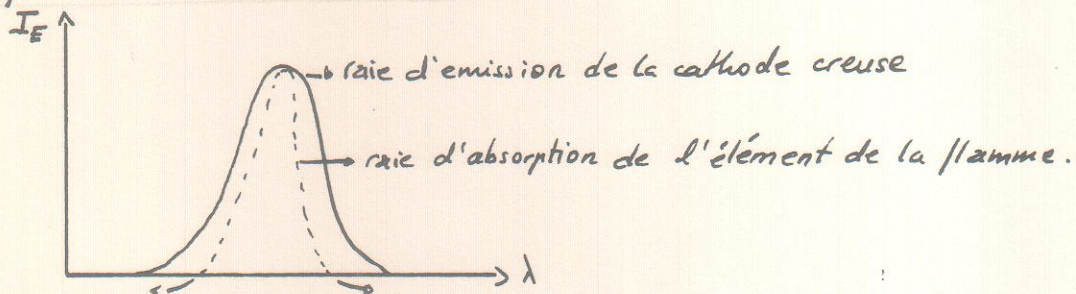 I_E
raie d'emission de la cathode creuse
raie d'absorption de l'élément de la flamme.
λ